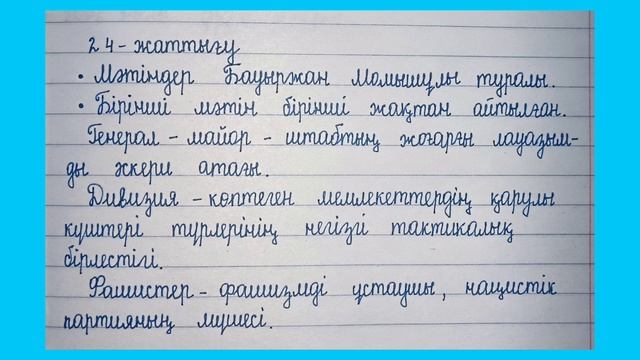 24-жаттығу
• Мәтіндер Бауыржан Момышұлы туралы.
• Бірінші мәтін бірінші жақтан айтылған.
Генерал - майор - штабтың жоғарғы лауазым-
ды әскери атағы.
Дивизия - көптеген мемлекеттердің қарулы
күштері түрлерінің негізгі тактикалық
бірлестігі.
Фашистер - фашизмді ұстаушы, нацистік
партияның мүшесі.